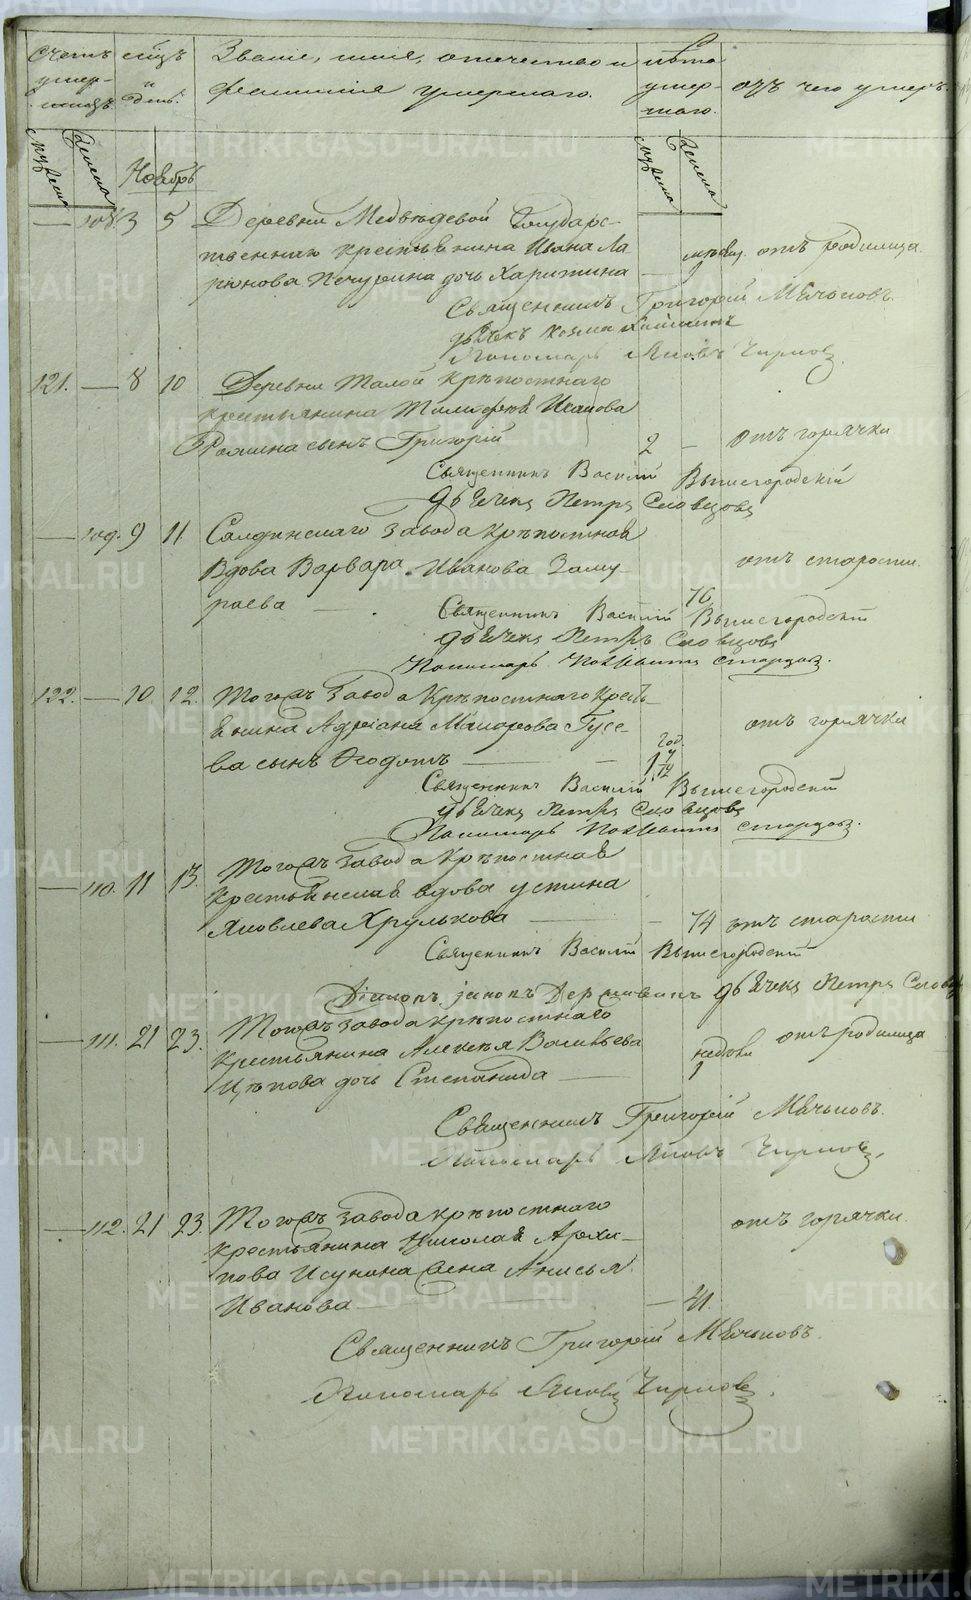 Счетъ умер-шихъ.
м҃цъ и день.
Званіе, имя, отечество и фамилія умершаго.
Лѣта умер-шаго.
отъ чего умеръ.
мужеска
женска
Ноябрь
мужеска
женска
— 108. 3 5 Деревни Медвѣдевой Государс-
твеннаго крестьянина Ивана Ла
ріонова Печурина дочь Харитина — 1 отъ родимца
Священникъ Григорій Мѣчьковъ.
дьячекъ Козма
Пономарь Яковъ Чирковъ
121. — 8 10 Деревни Талой крѣпостнаго
крестьянина Тимофея Исакова
Рямина сынъ Григорій 2 — отъ горячки
Священникъ Василій Вышегородскій
дьячекъ Петръ Словцовъ
— 109. 9 11 Салдинскаго завода крѣпостная
Вдова Варвара Иванова Заму-
раева — 70 отъ старости.
Священникъ Василій Вышегородскій
дьячекъ Петръ Словцовъ
Пономарь Стардовъ.
122. — 10 12. Тогожъ завода Крѣпостнаго крест-
янина Адріана Макарова Гусе-
ва сынъ Ѳеодотъ — год. 1 отъ горячки
Священникъ Василій Вышегородскій
дьячекъ Петръ Словцовъ
Пономарь Стардовъ.
— 110. 11 13. Тогожъ завода Крѣпостная
крестьянская вдова Устина
Яковлева Хрулькова — 74 отъ старости
Священникъ Василій Вышегородскій
Діаконъ дьячекъ Петръ Словцовъ
— 111. 21 23. Тогожъ завода крѣпостнаго
крестьянина Алексѣя Васильева
Цѣпова дочь Степанида — недѣли 1 отъ родимца
Священникъ Григорій Мѣчьковъ.
Пономарь Яковъ Чирковъ.
— 112. 21 23. Тогожъ завода крѣпостнаго
крестьянина Николая Архи-
пова Исунина жена Анисья
Иванова — 21. отъ горячки.
Священникъ Григорій Мѣчьковъ.
Пономарь Яковъ Чирковъ.
METRIKI.GASO-URAL.RU